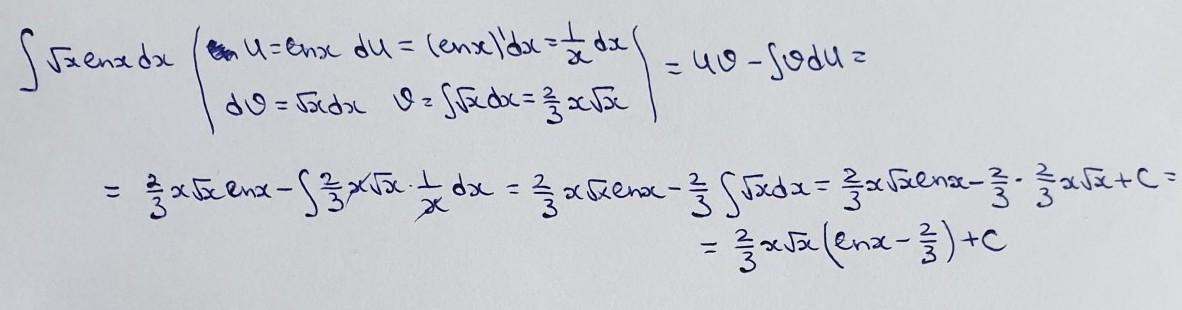 ∫√x lnx dx | u = lnx du = (lnx)'dx = 1/x dx | = uv - ∫vdu =
dv = √x dx v = ∫√x dx = 2/3 x√x
= 2/3 x√x lnx - ∫ 2/3 x√x · 1/x dx = 2/3 x√x lnx - 2/3 ∫√x dx = 2/3 x√x lnx - 2/3 · 2/3 x√x + C =
= 2/3 x√x (lnx - 2/3) + C